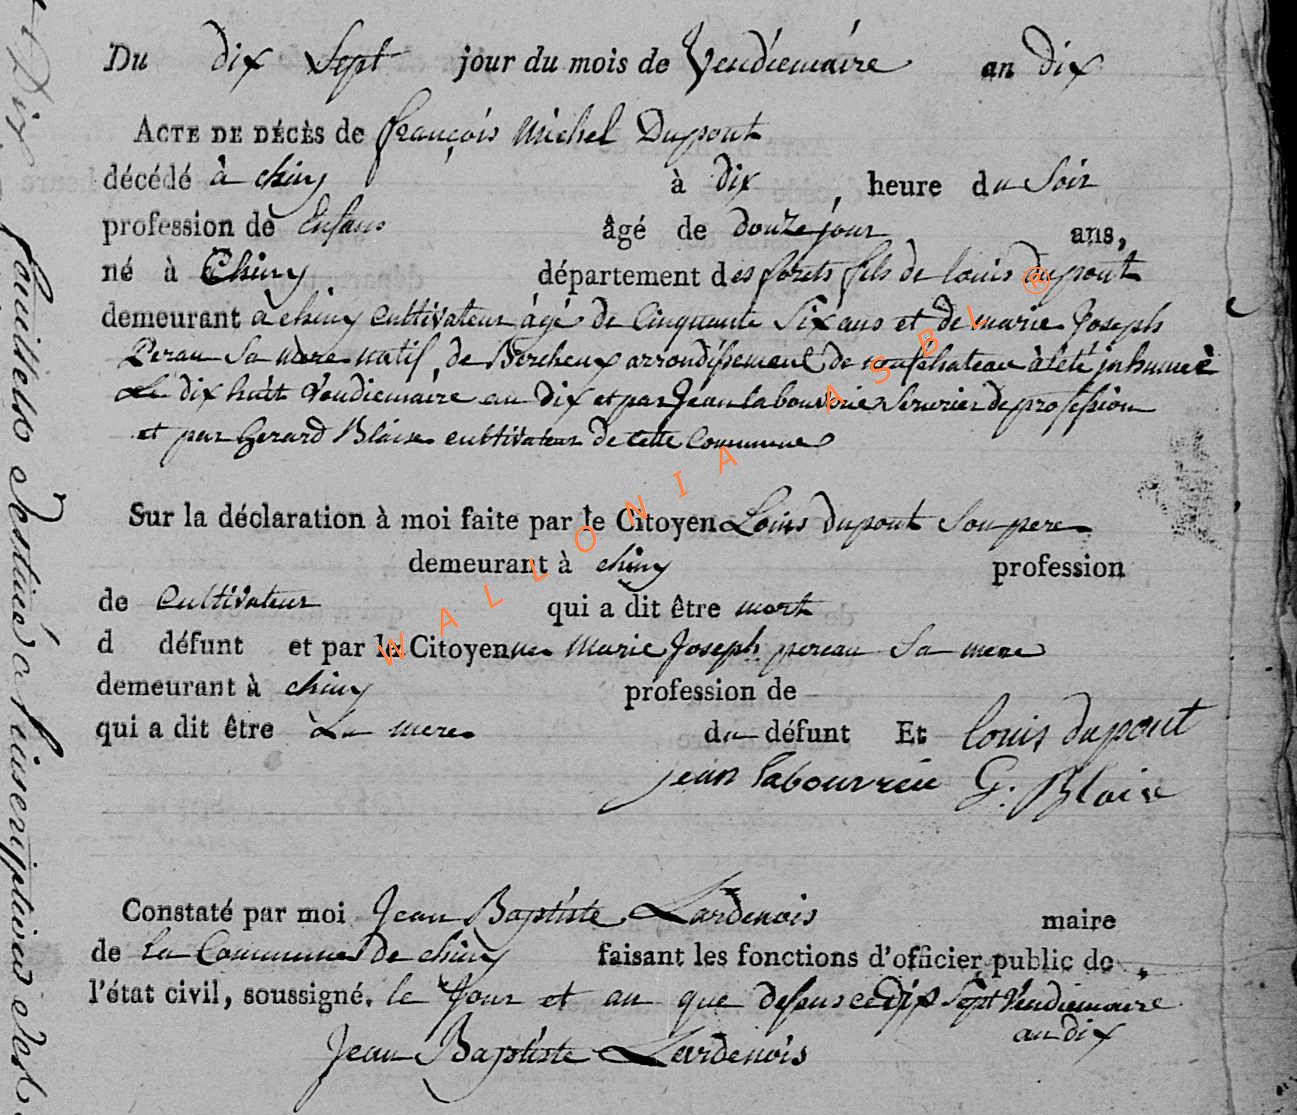 Du dix Sept jour du mois de Vendiemaire an dix
ACTE DE DÉCÈS de françois Michel Dupont
décédé à chiny à dix heure du Soir
profession de Enfans âgé de douze jour ans,
né à Chiny département des forets fils de louis dupont
demeurant à chiny cultivateur âgé de Cinquante Six ans et de marie Joseph
Perau Sa mere natif de Bercheux arrondissement de neufchateau à été inhumé
Le dix huit Vendiemaire an dix et par Jean labouvrie Serurier de profession
et par Gerard Blaise cultivateur de cette Commune
Sur la déclaration à moi faite par le Citoyen Loius dupont Son pere
demeurant à chiny profession
de Cultivateur qui a dit être mort
d défunt et par le Citoyenne Marie Joseph pereau Sa mere
demeurant à chiny profession de
qui a dit être La mere du défunt Et louis dupont
jean labouvrie G. Blaise
Constaté par moi Jean Baptiste Lardenois maire
de la Commune de chiny faisant les fonctions d'officier public de
l'état civil, soussigné. le Jour et an que dessus ce dix Sept Vendiemaire
an dix
Jean Baptiste Lardenois
WALLONIA ASBL ®